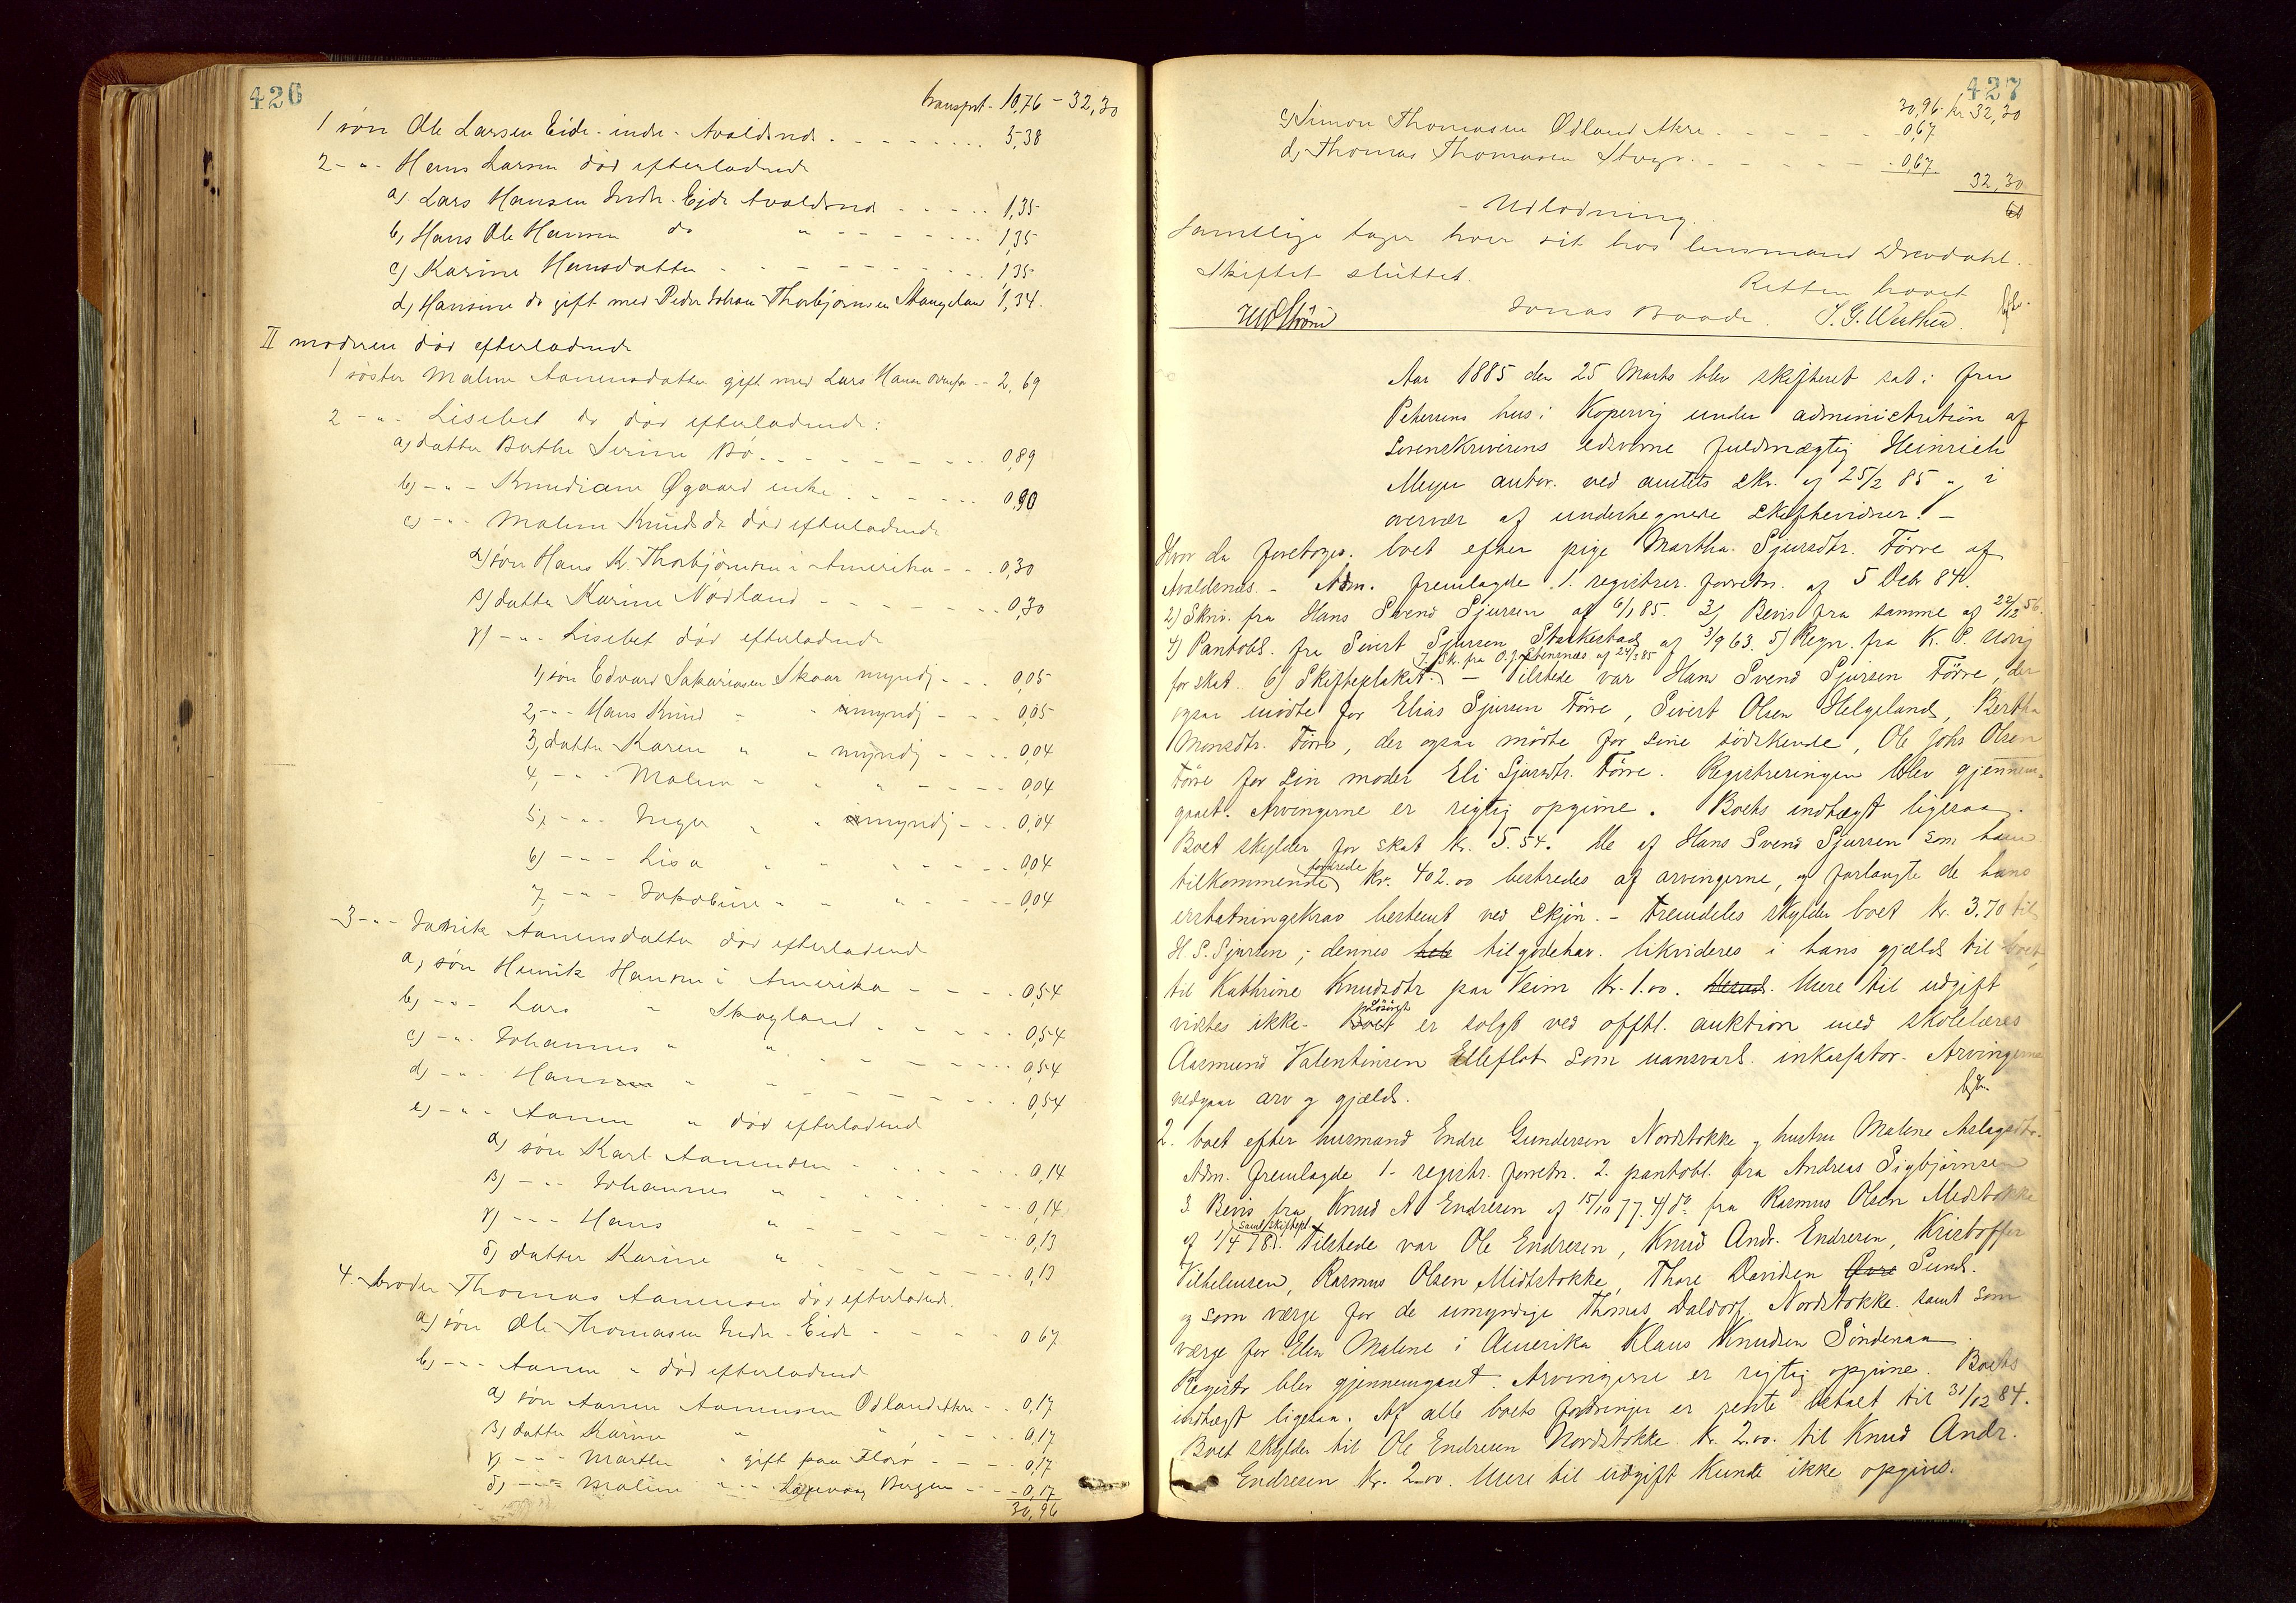 426
transport - 10,76 - 32,30
1 søn Ole Larsen Eide - indr. Avaldsnd. 5,38
2 - " - Hans Larsen død efterladende
a) Lars Hansen Indr. Ejde Avaldsnd 1,35
b, Hans Ole Hansen do " 1,35
c) Karine Hansdatter 1,35
d, Hansine do gift med Peder Johan Thorbjørnsen Stangeland 1,34.
II moderen død efterladende
1 søster Malene Aanensdatter gift med Lars Hansen 2,69
2 - " - Lisebet do død efterladende:
a, datter Berthe Serine Bø 0,89
b) - " - Knudiane Øgaard enke 0,90
c) - " - Malene Knudsdr død efterladende
α) søn Hans K. Thorbjørnsen i Amerika 0,30
β) datter Karine Nødland 0,30
γ) - " - Lisebet død efterladende
1, søn Edvard Sakariasen Skaar myndig 0,05
2, - " - Hans Knud " " umyndi 0,05
3, datter Karen " " myndj 0,04
4, - " - Malene " " " 0,04
5, - " - Inger " " umyndj 0,04
6) - " - Lisa " " " 0,04
7, - " - Jakobine " " " 0,04
3 - " - Janik Aanensdatter død efterladend
a, søn Henrik Hansen i Amerika 0,54
b, - " - Lars " Skogland 0,54
c) - " - Johannes " " 0,54
d) - " - Hans " " 0,54
e) - " - Aanen " død efterladend
α) søn Karl Aanensen 0,14
β) - " - Johannes " 0,14
γ) - " - Hans " 0,13
δ) datter Karine " 0,13
4. broder Thomas Aanensen død efterladend.
a) søn Ole Thomasen Indr - Eide 0 67
b, - " - Aanen " død efterladend
α) søn Aanen Aanensen Ødland Akre 0,17
β) datter Karine " " 0,17
γ, - " - Marthe " gift paa Florø 0,17
δ, - " - Maline " " Bergen 0,17
30,96
427
30,96 - kr 32,30
c) Simon Thomasen Ødland Akre 0,67
d, Thomas Thomasen 0,67
32,30
Udlodning.
Samtlige tager hver sit hos lensmand Drevdahl.
Skiftet sluttet.
Retten hævet
Jonas Baade. S. G. Wærhus.
Aar 1885 den 25 Marts blev skifteret sat i fru
Petersens hus i Kopervig under administration af
Sorenskriverens edsvorne fuldmægtig Heinrich
Meyer autor. ved amtets skr. af 25/2 85 og i
overvær af undertegnede skiftevidner. -
Hvor da foretoges. boet efter pige Martha Sjursdtr. Førre af
Avaldsnæs. - Adm. fremlagde 1. registrer. forretn. af 5 Octr 84.
2) Skriv. fra Hans Svend Sjursen af 6/1 85. 3) Bevis fra samme af 22/12 56.
4) Pantobl. fra Sivert Sjursen Storkestad af 3/9 63. 5) Regn. fra K. P. Udvig
7. Sk. fra O. J. Steensnæs af 24/3 85
for skat. 6) Skifteplakat. - Tilstede var Hans Svend Sjursen Førre, der
ogsaa mødte for Elias Sjursen Førre, Sivert Olsen Helgeland, Bertha
Monsdtr. Førre, der ogsaa mødte for sine sødskende, Ole Johs Olsen
Førre for sin moder Eli Sjursdtr. Førre. Registreringen blev gjennem-
gaaet. Arvingerne er rigtig opgivne. Boets indtægt ligesaa.
Boet skylder for skat kr. 5.54. De af Hans Svend Sjursen som ham
fordrede
tilkommende kr. 402.00 bestredes af arvingerne, og forlangte de hans
erstatningskrav bestemt ved skjøn. - Fremdeles skylder boet kr. 3.70 til
H S. Sjursen; dennes tilgodehav. likvideres i hans gjæld til boet,
til Kathrine Knudsdtr paa Veim kr. 1.00. Mere til udgift
Løsøret
vidstes ikke. Boet er solgt ved offtl. auktion med skolelærer
Aasmund Valentinsen Elleflot som uansvarl. inkassator. Arvingerne
vedgaar arv og gjæld.
2. boet efter husmand Endre Gundersen Nordstokke og hustru Malene Aslagsdtr.
Adm. fremlagde 1. registr. forretn. 2. pantobl. fra Andreas Sigbjørnsen
3. Bevis fra Knud A. Endresen af 15/10 77. 4) do fra Rasmus Olsen Midstokke
samt skiftepl.
af 1/4 78. Tilstede var Ole Endresen, Knud Andr. Endresen, Kristoffer
Vilhelmsen, Rasmus Olsen Midtstokke, Thore Davidsen Øvre Sund.
og som værge for de umyndige Thomas Daldorf Nordstokke samt som
værge for Elen Malene i Amerika Klaus Knudsen Søndenaa.
Registr blev gjennemgaaet. Arvingerne er rigtig opgivne. Boets
indtægt ligesaa. Af alle boets fordringer er rente betalt til 31/12 84.
Boet skylder til Ole Endresen Nordstokke kr. 2.00. til Knud Andr.
Endresen kr. 2.00. Mere til udgift kunde ikke opgives.